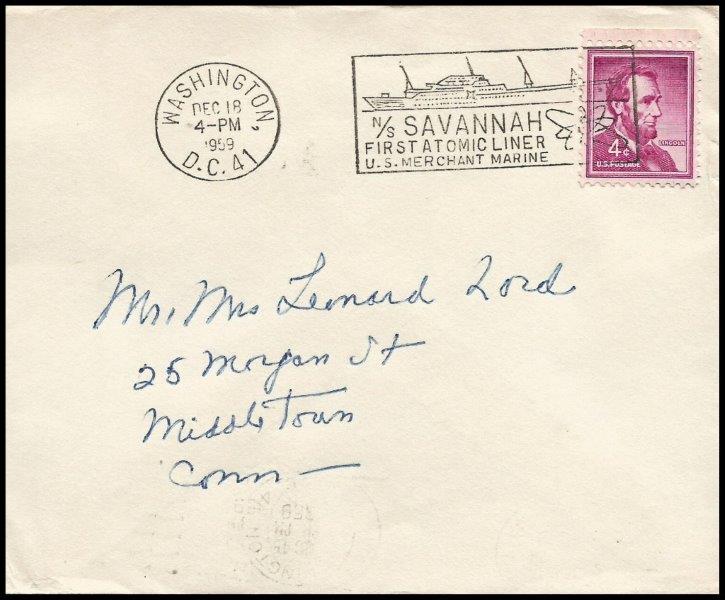 WASHINGTON,
DEC 18
4-PM
1959
D.C. 41
N/S SAVANNAH
FIRST ATOMIC LINER
U.S. MERCHANT MARINE
4¢
LINCOLN
U.S. POSTAGE
Mr. Mrs Leonard Lord
25 Morgan St
Middletown
Conn